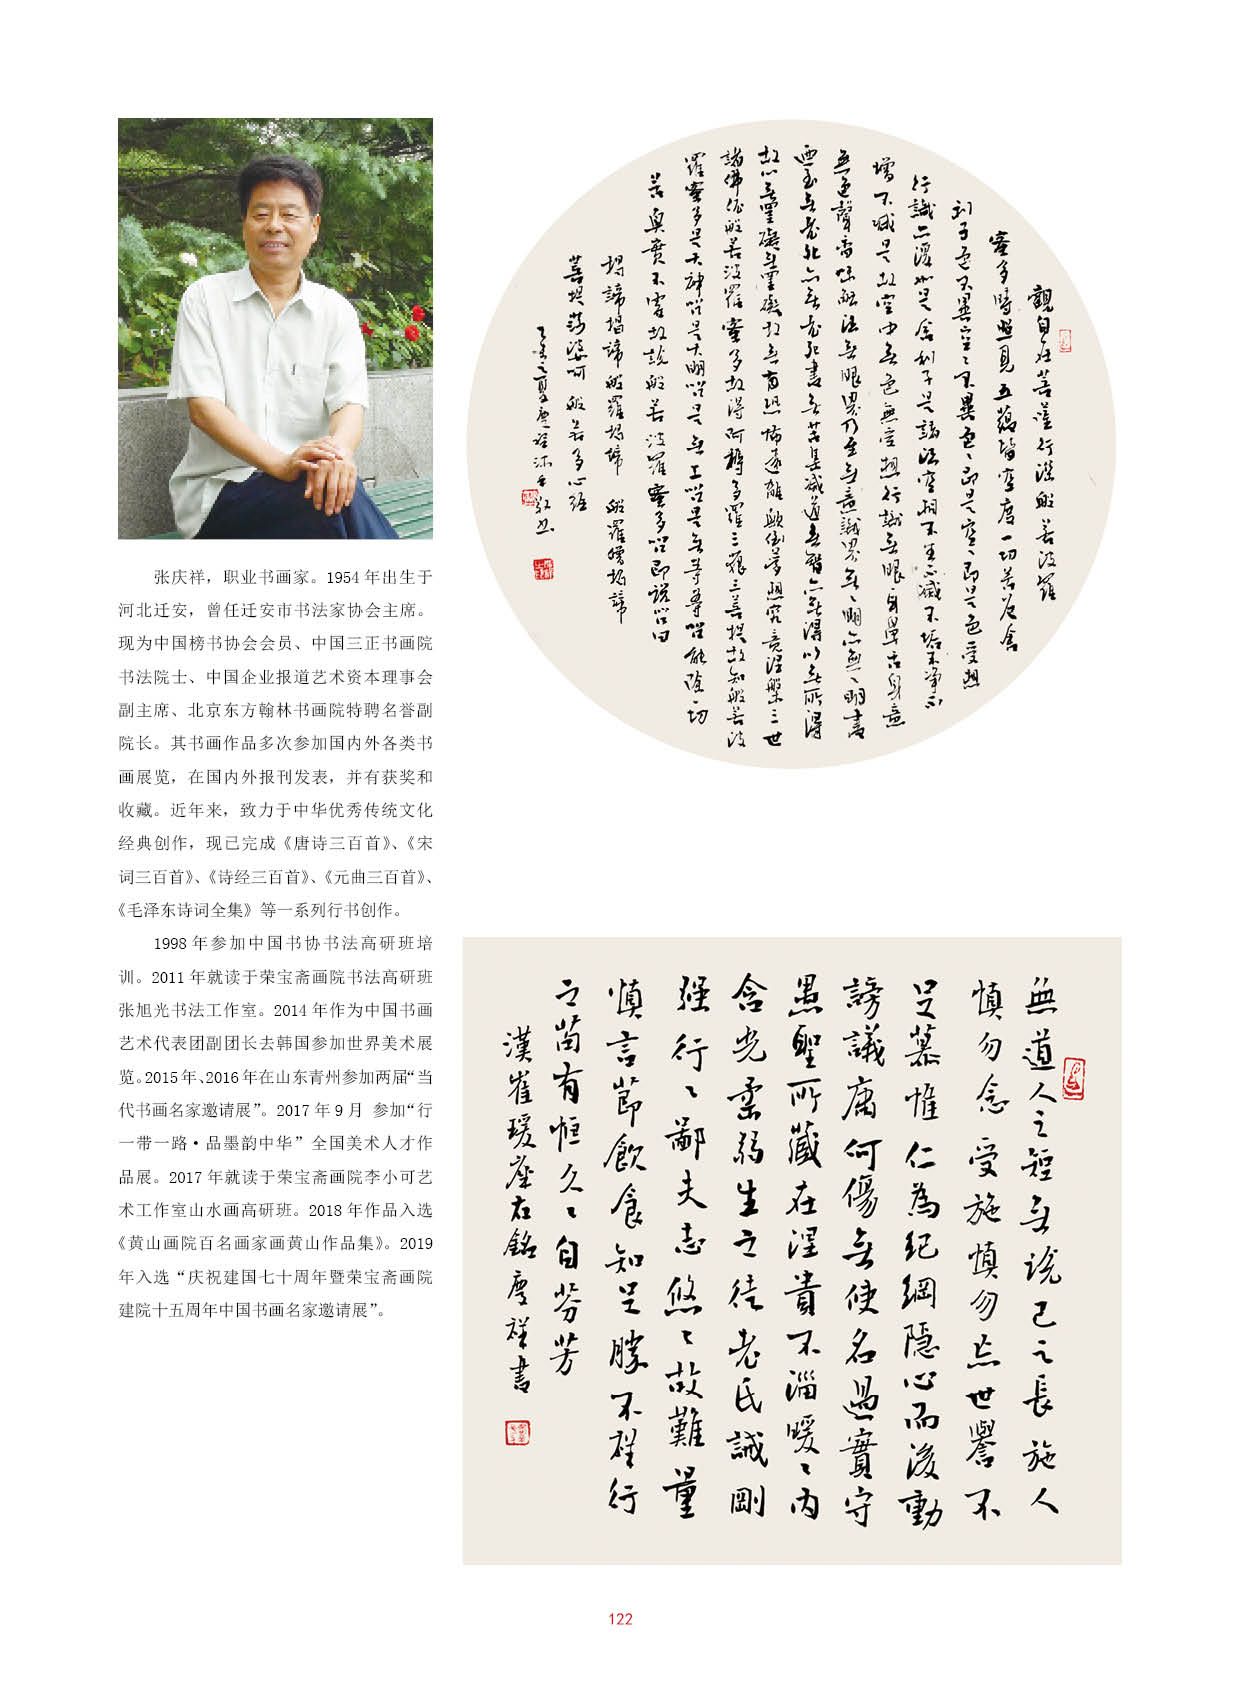 张庆祥，职业书画家。1954 年出生于
河北迁安，曾任迁安市书法家协会主席。
现为中国榜书协会会员、中国三正书画院
书法院士、中国企业报道艺术资本理事会
副主席、北京东方翰林书画院特聘名誉副
院长。其书画作品多次参加国内外各类书
画展览，在国内外报刊发表，并有获奖和
收藏。近年来，致力于中华优秀传统文化
经典创作，现已完成《唐诗三百首》、《宋
词三百首》、《诗经三百首》、《元曲三百首》、
《毛泽东诗词全集》等一系列行书创作。
1998 年参加中国书协书法高研班培
训。2011 年就读于荣宝斋画院书法高研班
张旭光书法工作室。2014 年作为中国书画
艺术代表团副团长去韩国参加世界美术展
览。2015年、2016年在山东青州参加两届“当
代书画名家邀请展”。2017 年 9 月 参加“行
一带一路·品墨韵中华”全国美术人才作
品展。2017 年就读于荣宝斋画院李小可艺
术工作室山水画高研班。2018 年作品入选
《黄山画院百名画家画黄山作品集》。2019
年入选“庆祝建国七十周年暨荣宝斋画院
建院十五周年中国书画名家邀请展”。
觀自在菩薩行深般若波羅
蜜多時照見五蘊皆空度一切苦厄舍
利子色不異空空不異色色即是空空即是色受想
行識亦復如是舍利子是諸法空相不生不滅不垢不淨不
增不減是故空中無色無受想行識無眼耳鼻舌身意
無色聲香味觸法無眼界乃至無意識界無無明亦無無明盡
乃至無老死亦無老死盡無苦集滅道無智亦無得以無所得
故心無罣礙無罣礙故無有恐怖遠離顛倒夢想究竟涅槃三世
諸佛依般若波羅蜜多故得阿耨多羅三藐三菩提故知般若波
羅蜜多是大神咒是大明咒是無上咒是無等等咒能除一切
苦真實不虛故說般若波羅蜜多咒即說咒曰
揭諦揭諦 般羅揭諦 般羅僧揭諦
菩提薩婆訶 般若多心經
無道人之短無說己之長施人
慎勿念受施慎勿忘世譽不
足慕惟仁為紀綱隱心而後動
謗議庸何傷無使名過實守
愚聖所藏在涅貴不淄曖〻內
含光柔弱生之徒老氏誡剛
強行〻鄙夫志悠〻故難量
慎言節飲食知足勝不祥行
之苟有恒久〻自芬芳
漢崔瑗座右銘慶祥書
122